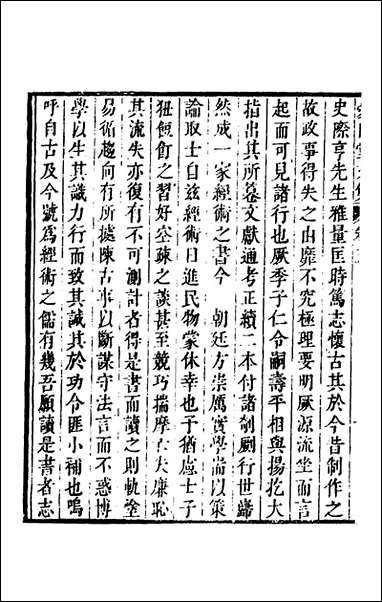 史際亨先生雅量匡時篤志懷古其於今昔制作之
故政事得失之由靡不究極理要明厥源流坐而言
起而可見諸行也厥季子仁令嗣壽平相與揚扢大
指出其所纂文獻通考正續二本付諸剞劂行世歸
然成一家經術之書今　朝廷方崇厲實學耑以策
論取士自玆經術日進民物蒙休幸也于猶慮士子
狃飽飣之習好空疎之談甚至競巧揣摩大廉恥
其流失亦復有不可測計者得是書而讀之則軌塗
易循趨向有所據陳古事以斷謀守法言而不惑博
學以生其識力行而致其誠其於功令匪小補也嗚
呼自古及今號爲經術之儒有幾吾願讀是書者志